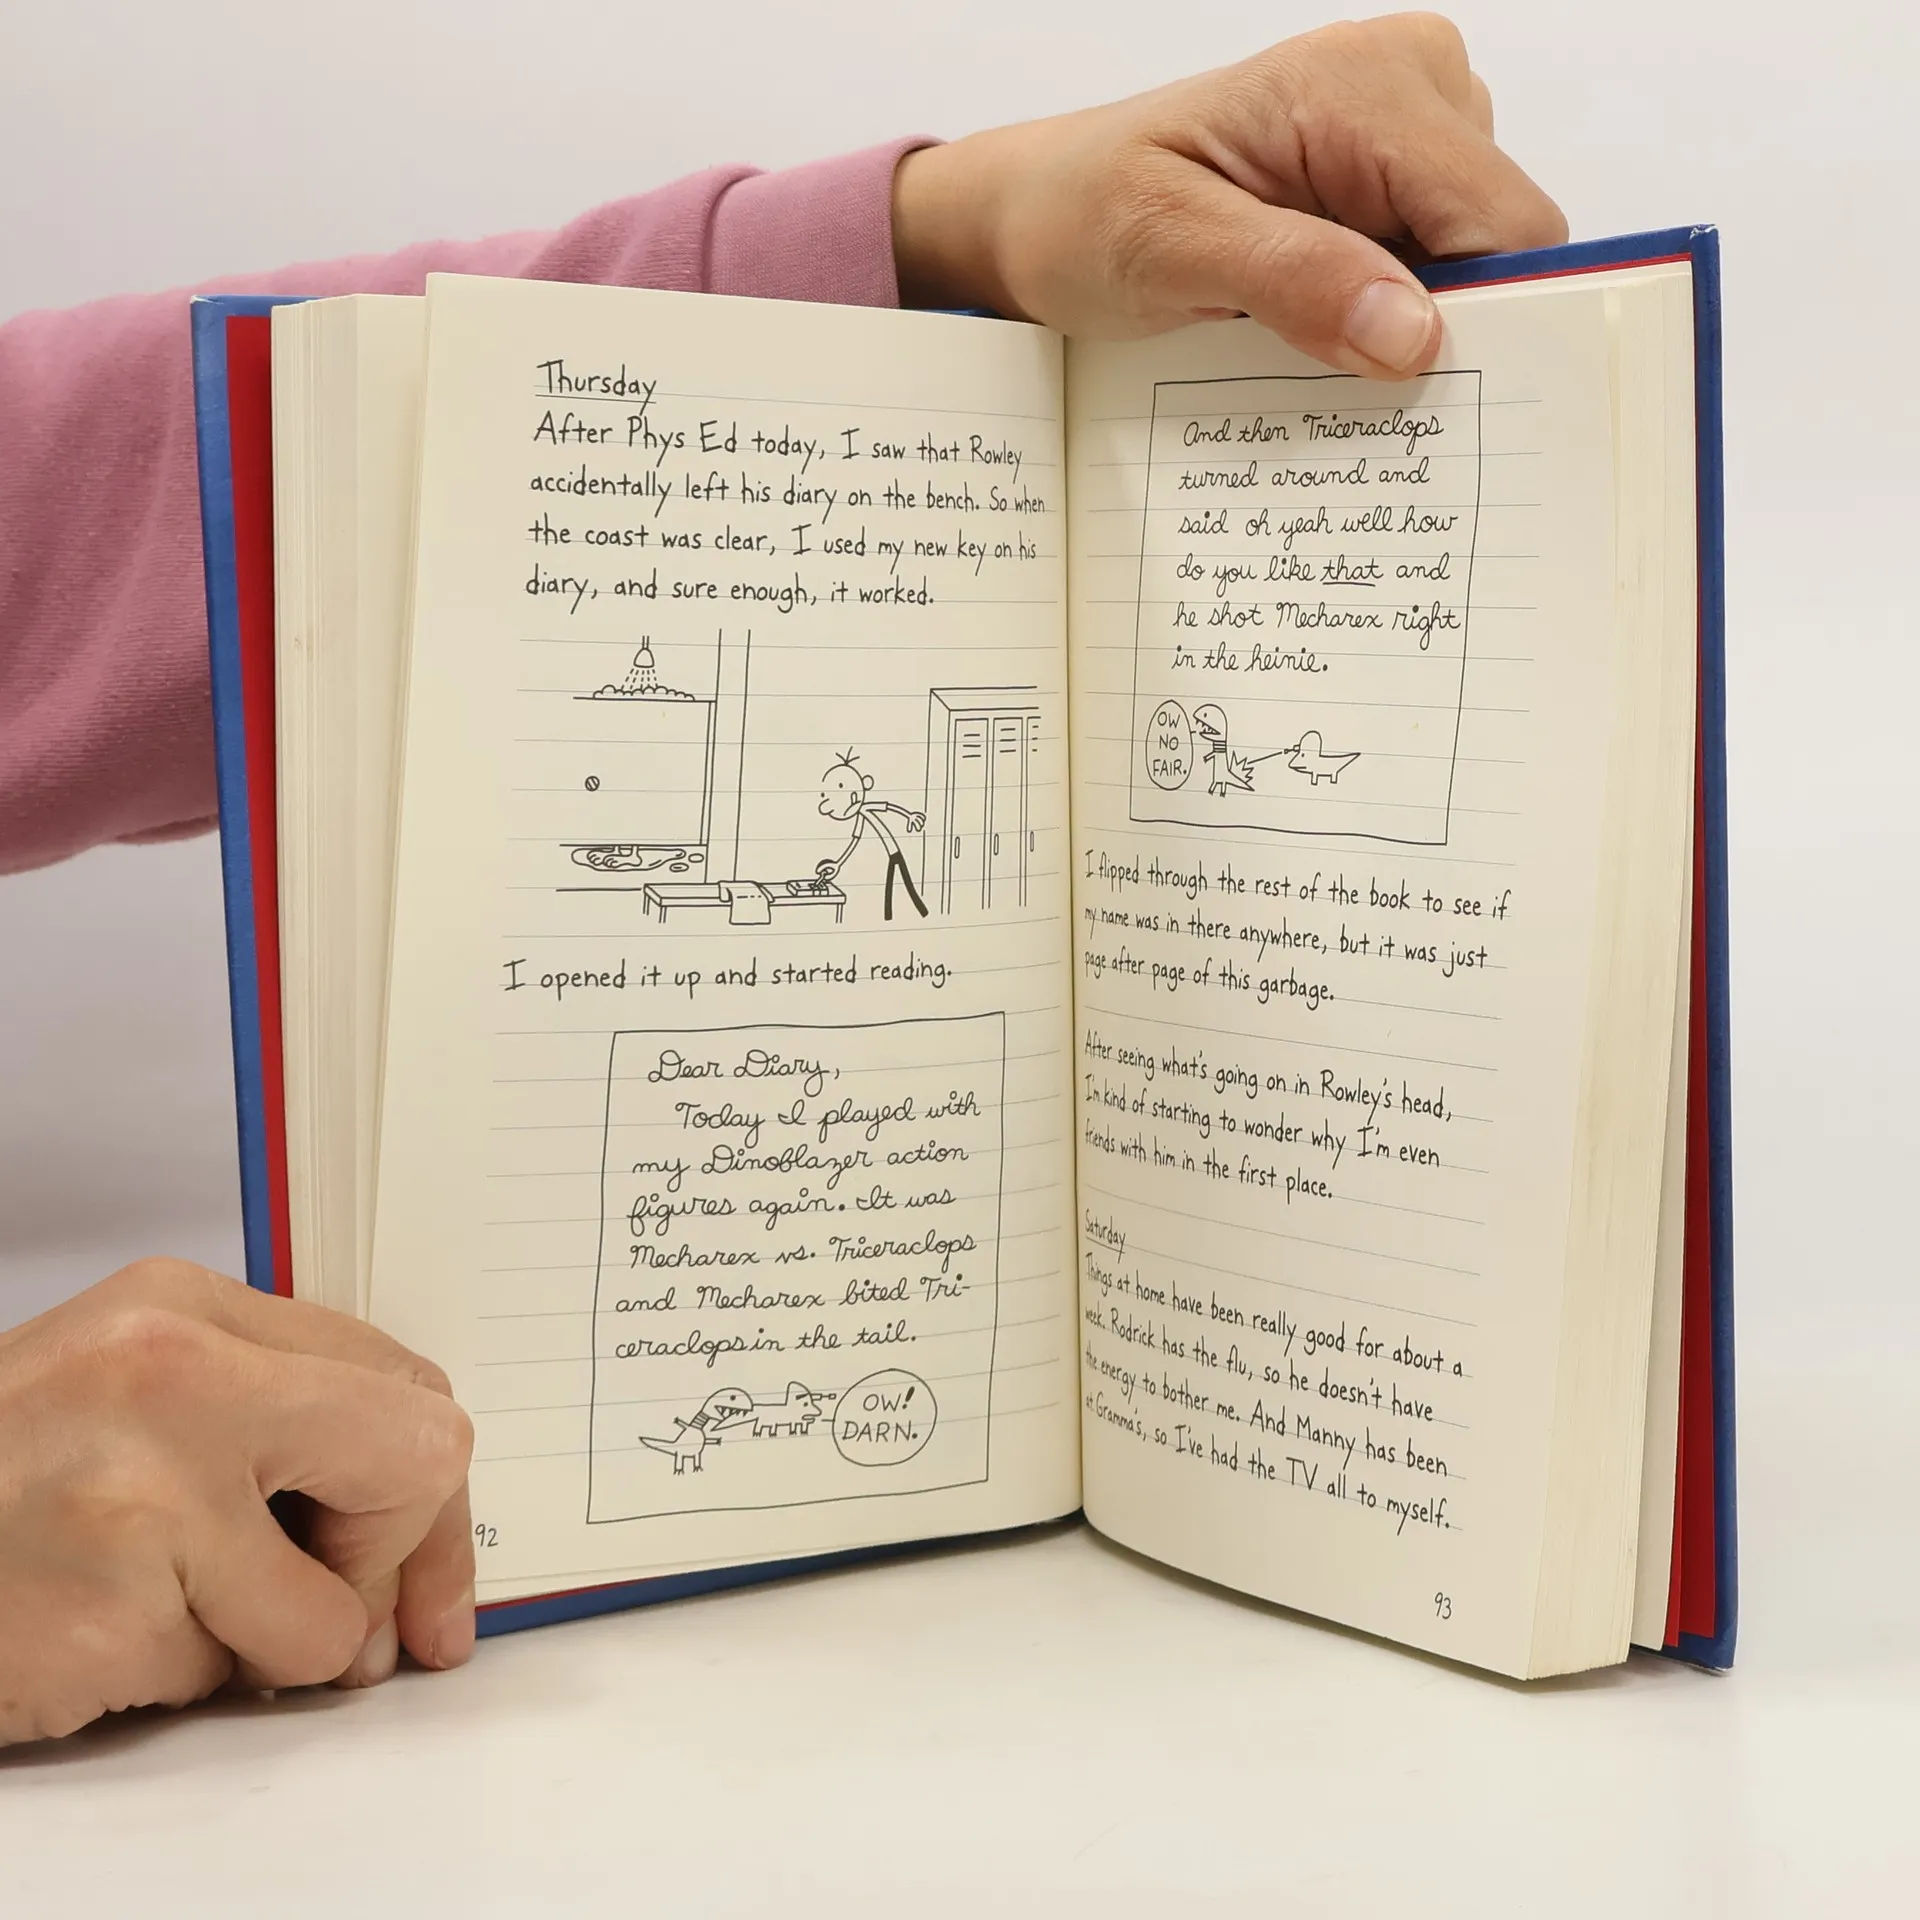 Thursday
After Phys Ed today, I saw that Rowley
accidentally left his diary on the bench. So when
the coast was clear, I used my new key on his
diary, and sure enough, it worked.
I opened it up and started reading.
Dear Diary,
Today I played with
my Dinoblazer action
figures again. It was
Mecharex vs. Triceraclops
and Mecharex bited Tri-
ceraclops in the tail.
OW!
DARN.
92
And then Triceraclops
turned around and
said oh yeah well how
do you like that and
he shot Mecharex right
in the heinie.
OW
NO
FAIR.
I flipped through the rest of the book to see if
my name was in there anywhere, but it was just
page after page of this garbage.
After seeing what's going on in Rowley's head,
I'm kind of starting to wonder why I'm even
friends with him in the first place.
Saturday
Things at home have been really good for about a
week. Rodrick has the flu, so he doesn't have
the energy to bother me. And Manny has been
at Gramma's, so I've had the TV all to myself.
93